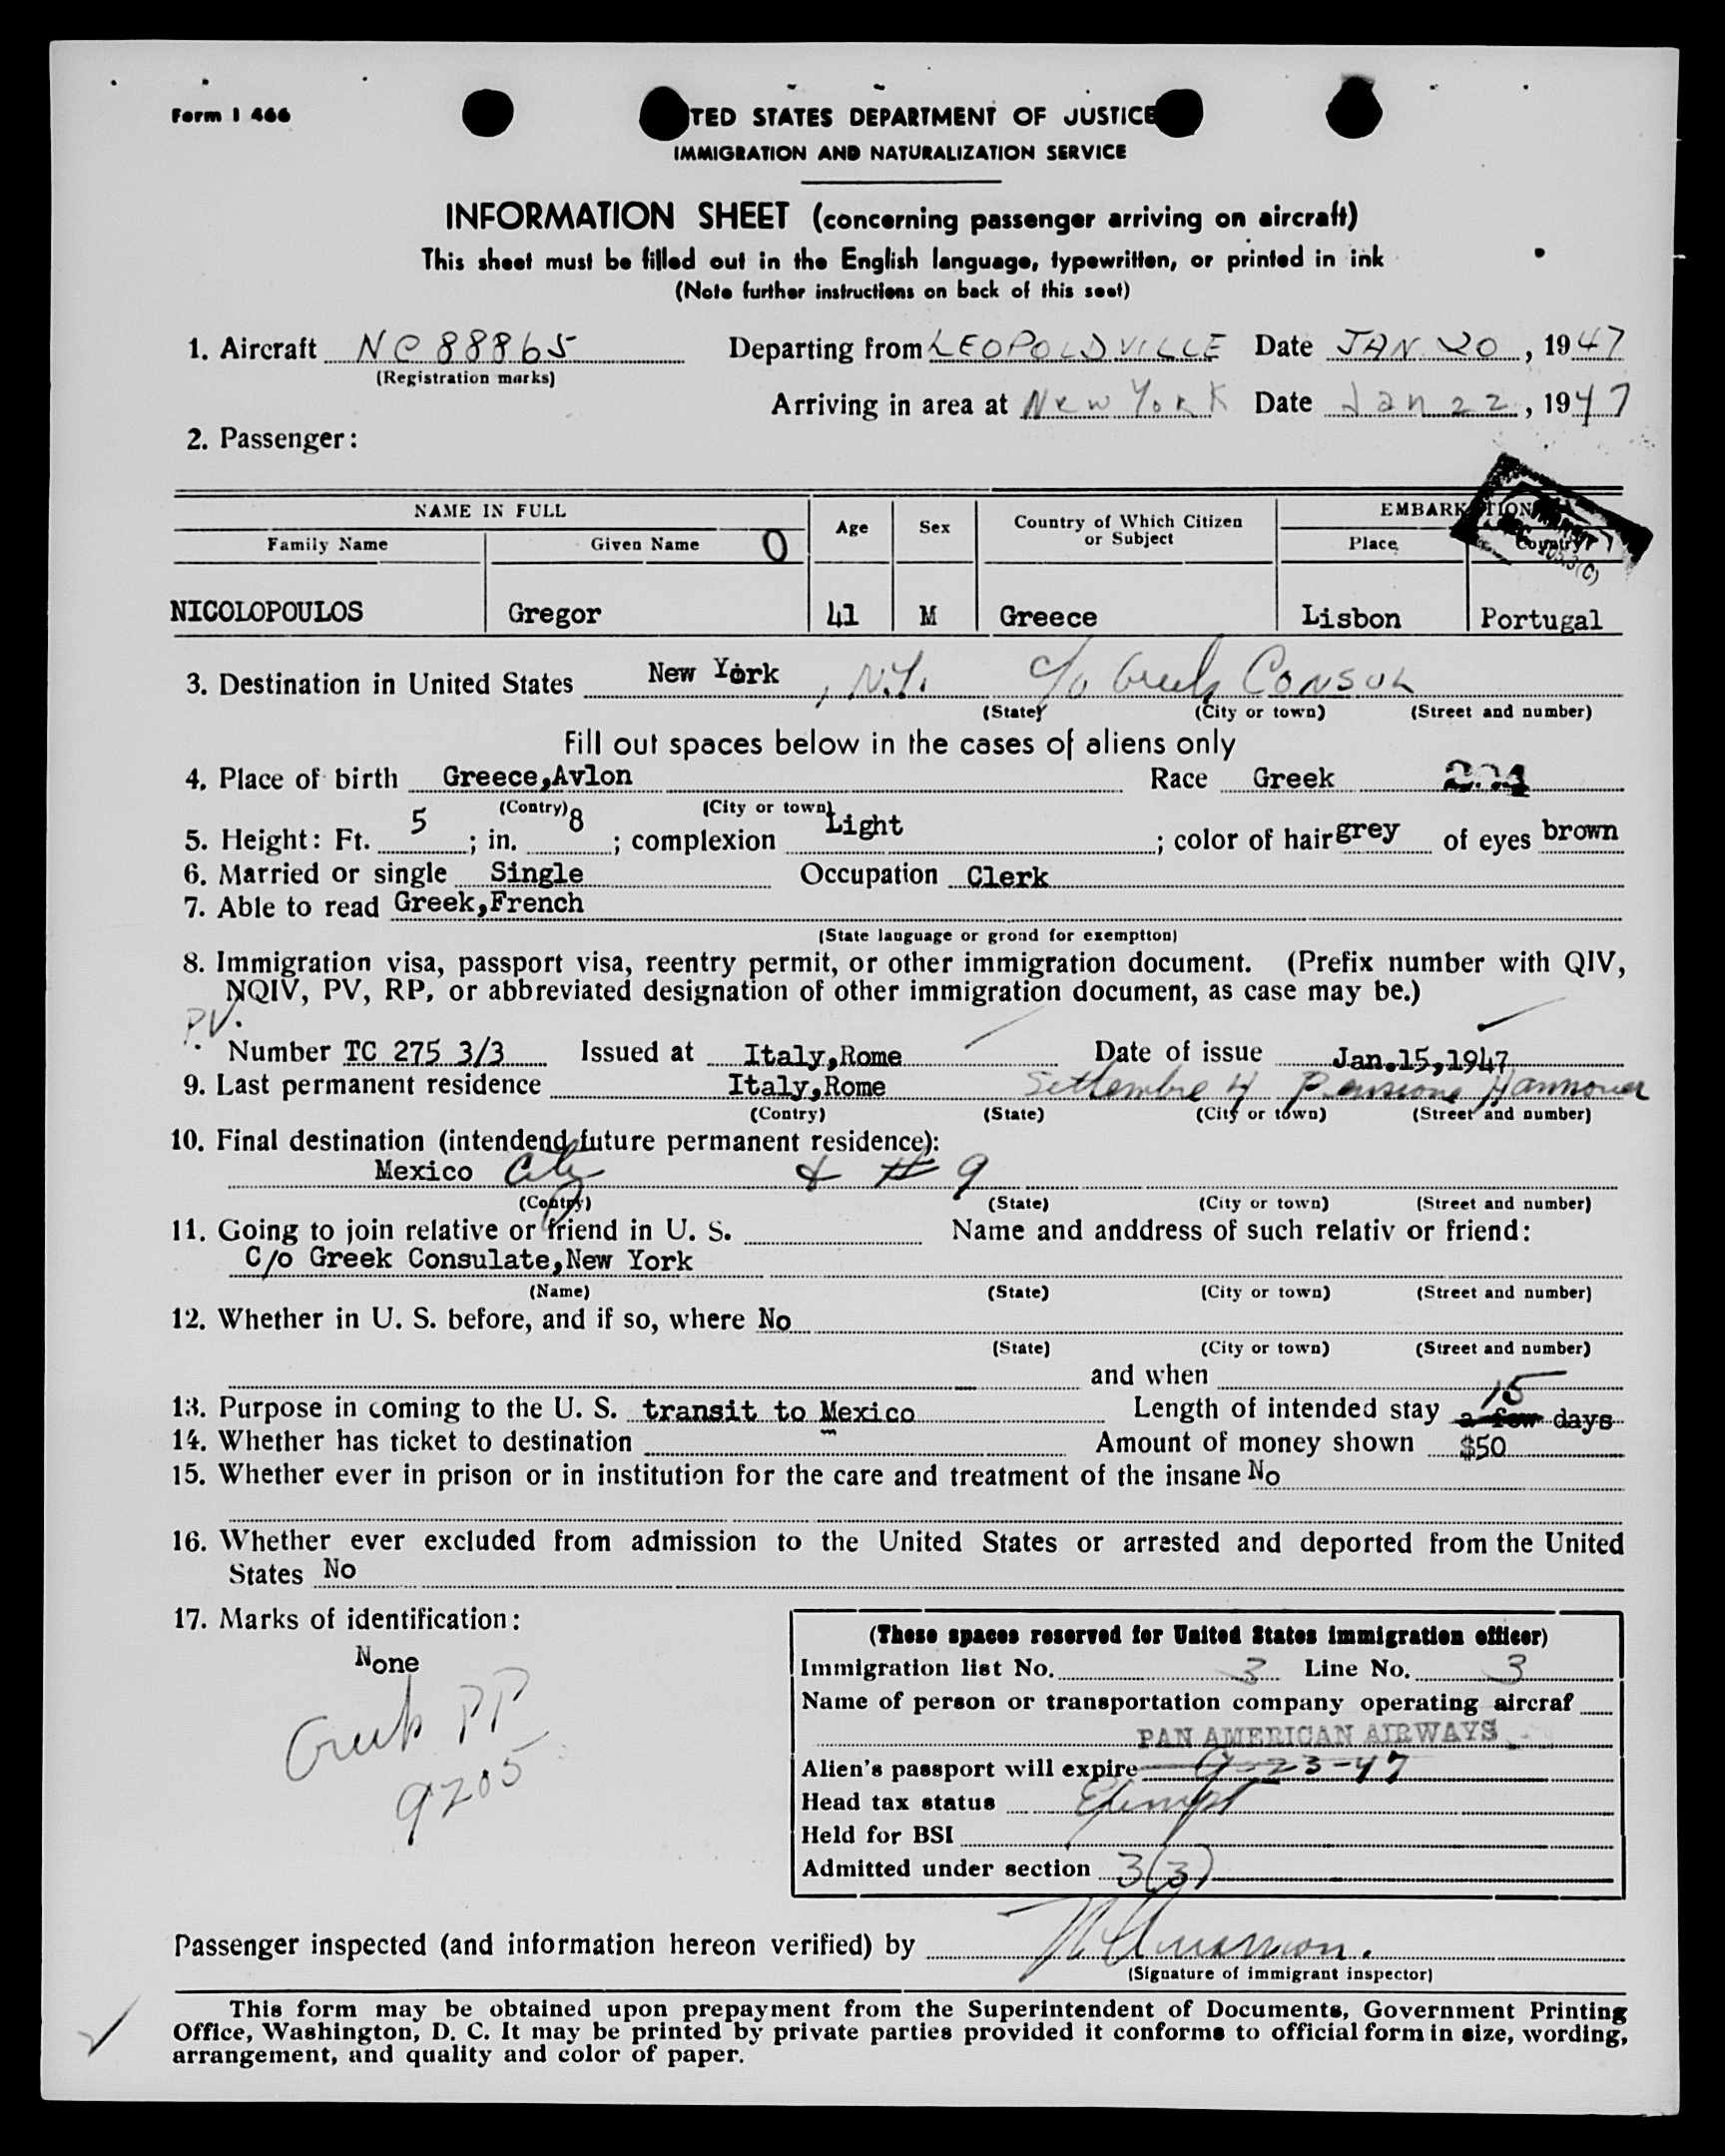 Form I 466
TED STATES DEPARTMENT OF JUSTICE
IMMIGRATION AND NATURALIZATION SERVICE
INFORMATION SHEET (concerning passenger arriving on aircraft)
This sheet must be filled out in the English language, typewritten, or printed in ink
(Note further instructions on back of this seet)
1. Aircraft NC 88865 Departing from LEOPOLDVILLE Date JAN 20, 1947
(Registration marks)
Arriving in area at New York Date Jan 22, 1947
2. Passenger:
NAME IN FULL Age Sex Country of Which Citizen or Subject EMBARKATION
Family Name Given Name O Place Country
NICOLOPOULOS Gregor 41 M Greece Lisbon Portugal
3. Destination in United States New York, N.Y. c/o Greek Consul
(State) (City or town) (Street and number)
Fill out spaces below in the cases of aliens only
4. Place of birth Greece,Avlon Race Greek
(Contry) (City or town)
5. Height: Ft. 5; in. 8; complexion Light; color of hair grey of eyes brown
6. Married or single Single Occupation Clerk
7. Able to read Greek,French
(State language or grond for exemption)
8. Immigration visa, passport visa, reentry permit, or other immigration document. (Prefix number with QIV,
NQIV, PV, RP, or abbreviated designation of other immigration document, as case may be.)
PV.
Number TC 275 3/3 Issued at Italy,Rome Date of issue Jan.15,1947
9. Last permanent residence Italy,Rome Settembre 4 Pensione Hannover
(Contry) (State) (City or town) (Street and number)
10. Final destination (intendend future permanent residence):
Mexico City & # 9
(Contry) (State) (City or town) (Street and number)
11. Going to join relative or friend in U. S. Name and anddress of such relativ or friend:
C/o Greek Consulate,New York
(Name) (State) (City or town) (Street and number)
12. Whether in U. S. before, and if so, where No
(State) (City or town) (Street and number)
and when
13. Purpose in coming to the U. S. transit to Mexico Length of intended stay 15 a few days
14. Whether has ticket to destination Amount of money shown $50
15. Whether ever in prison or in institution for the care and treatment of the insane No
16. Whether ever excluded from admission to the United States or arrested and deported from the United
States No
17. Marks of identification:
None
Greek PP
9205
(These spaces reserved for United States immigration officer)
Immigration list No. 3 Line No. 3
Name of person or transportation company operating aircraf
PAN AMERICAN AIRWAYS
Alien's passport will expire 9-23-47
Head tax status Exempt
Held for BSI
Admitted under section 3(3)
Passenger inspected (and information hereon verified) by
(Signature of immigrant inspector)
This form may be obtained upon prepayment from the Superintendent of Documents, Government Printing
Office, Washington, D. C. It may be printed by private parties provided it conforms to official form in size, wording,
arrangement, and quality and color of paper.